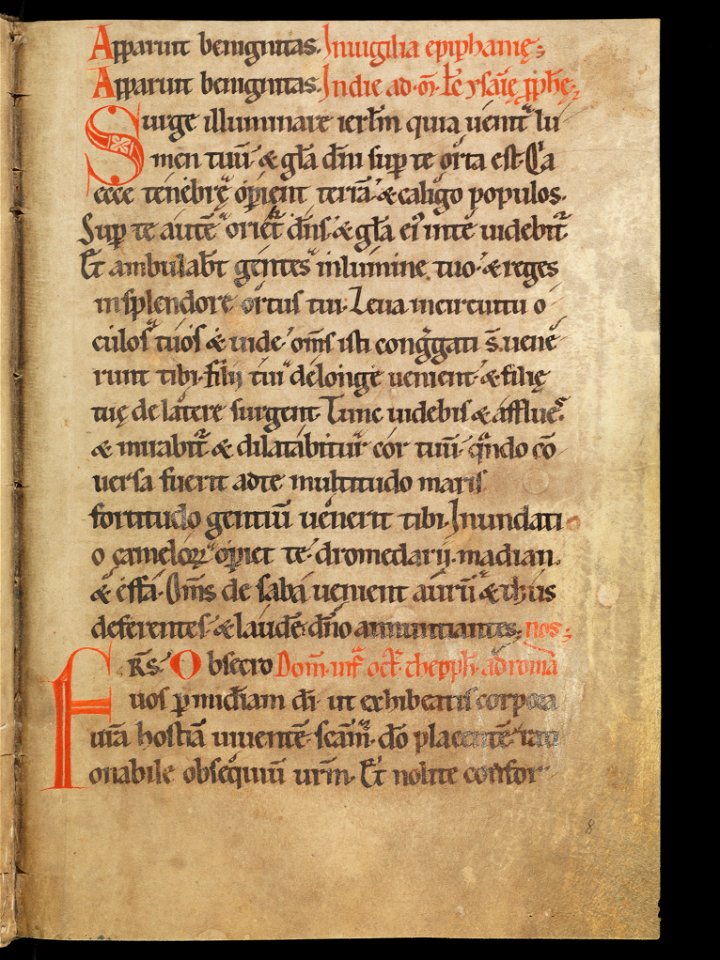 Apparuit benignitas. In uigilia epiphanię.
Apparuit benignitas. In die ad .om̄. Lc̄ ysaię ꝓphę.
Surge illuminare ierlm̄ quia uenit lu
men tuū. & gl̄a dn̄i sup̄ te orta est. Quia
ecce tenebrę operient terrā. & caligo populos.
Sup̄ te autē oriet̄ dn̄s. & gl̄a ei᷒ in te uidebit̄.
Et ambulabt̄ gentes in lumine tuo. & reges
in splendore ortus tui. Leua in circuitu o
culos tuos & uide. om̄s isti congḡati s̄. uene
runt tibi. filij tui de longe uenient. & filię
tuę de latere surgent. Tunc uidebis & afflue.
& mirabit̄ & dilatabitur cor tuū. qn̄do cō
uersa fuerit ad te multitudo maris
fortitudo gentiū uenerit tibi. Inundati
o cameloꝝ operiet te. dromedarij. madian.
& effa. Om̄s de saba uenient aurū & thus
deferentes. & laudē dn̄o annuntiantes. nos.
FRS. Obsecro Dom̄. inf̄ oct̄. theoph. ad romā
uos ꝑ mīdiam dī. ut exhibeatis corpora
ur̄a hostiā uiuentē. sc̄am. dō placentē. rati
onabile obsequiū urm̄. Et nolite confor
8